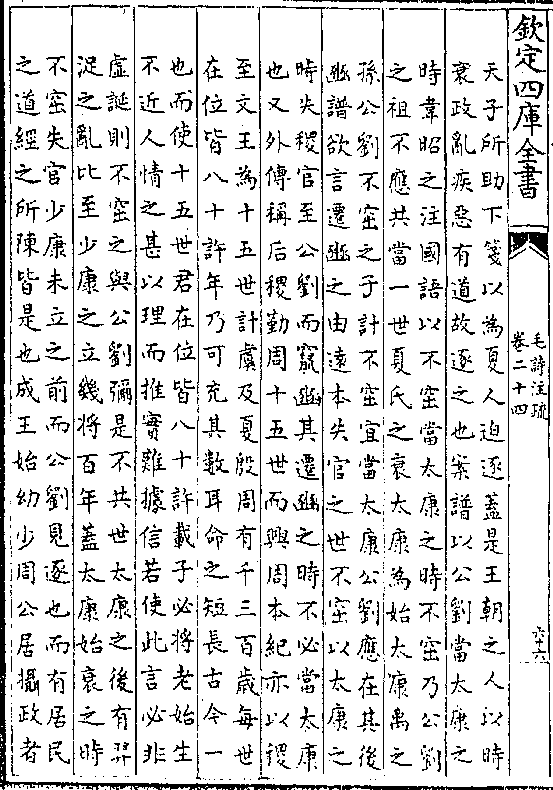 欽定四庫全書
毛詩注疏
卷二十四
六十六
天子所助下箋以為夏人迫逐蓋是王朝之人以時
衰政亂疾惡有道故逐之也案譜以公劉當太康之
時韋昭之注國語以不窋當太康之時不窋乃公劉
之祖不應共當一世夏氏之衰太康為始太康禹之
孫公劉不窋之子計不窋宜當太康公劉應在其後
豳譜欲言遷豳之由遠本失官之世不窋以太康之
時失稷官至公劉而竄豳其遷豳之時不必當太康
也又外傳稱后稷勤周十五世而興周本紀亦以稷
至文王為十五世計虞及夏殷周有千三百歲每世
在位皆八十許年乃可充其數耳命之短長古今一
也而使十五世君在位皆八十許載子必將老始生
不近人情之甚以理而推實難據信若使此言必非
虛誕則不窋之與公劉彌是不共世太康之後有羿
浞之亂比至少康之立幾將百年蓋太康始衰之時
不窋失官少康未立之前而公劉見逐也而有居民
之道經之所陳皆是也成王始幼少周公居攝政者